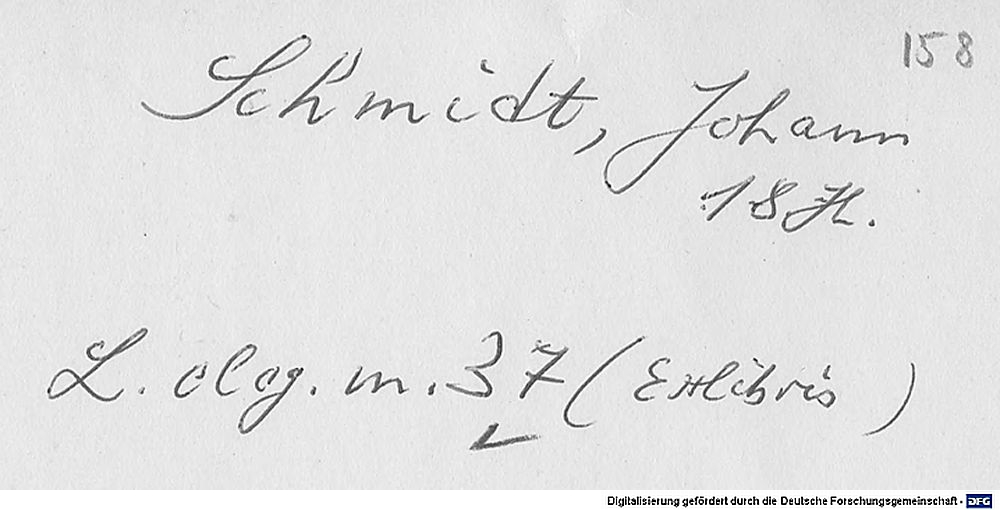 158
Schmidt, Johann
18 Jh.
L. eleg. m. 37 (Exlibris)
Digitalisierung gefördert durch die Deutsche Forschungsgemeinschaft - DFG